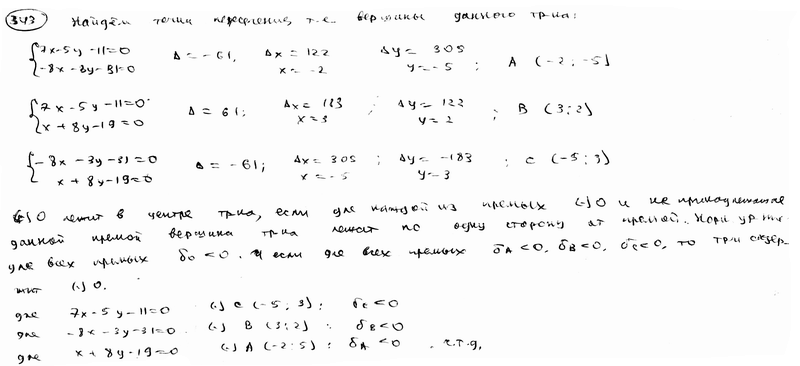 343 Найдём точки пересечения, т.е. вершины данного тр-ка:
{7x-5y-11=0 Δ=-61, Δx=122 Δy=305
-8x-3y-31=0 x=-2 y=-5 ; A (-2;-5)
{7x-5y-11=0 Δ=61; Δx=183 ; Δy=122
x+8y-19=0 x=3 y=2 ; B (3;2)
{-8x-3y-31=0 Δ=-61; Δx=305 ; Δy=-183
x+8y-19=0 x=-5 y=3 ; C (-5;3)
(·) O лежит в центре тр-ка, если для каждой из прямых (·) O и не принадлежащая
данной прямой вершина тр-ка лежат по одну сторону от прямой. Норм. ур-ние
для всех прямых δo<0. И если для всех прямых δA<0, δB<0, δC<0, то тр-к содер-
жит (·) O.
для 7x-5y-11=0 (·) C (-5;3); δC<0
для -8x-3y-31=0 (·) B (3;2) ; δB<0
для x+8y-19=0 (·) A (-2;5) ; δA<0 , ч.т.д.